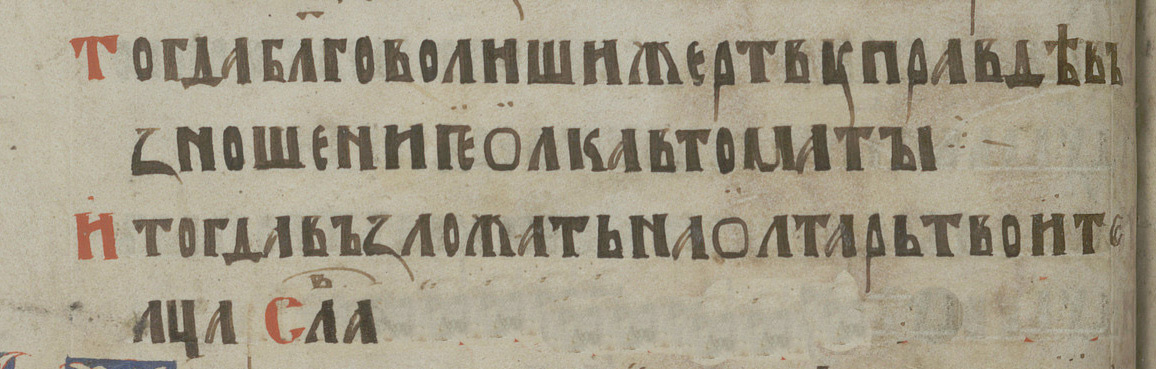 Тогдабл҃говолишижертвуправдѣвъ
ꙁношениѥолкавтоматꙑ
Итогдавъꙁложатьнаолтарьтвоите
лца Слⷡ҇а